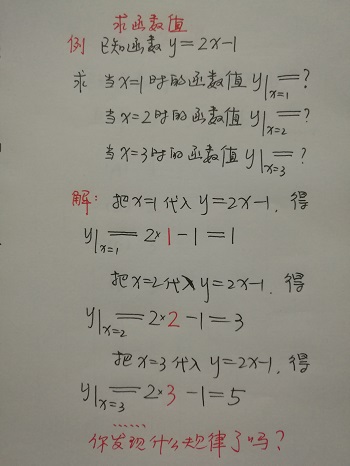 求函数值
例 已知函数 y=2x-1
求 当x=1时的函数值 y|x=1=?
当x=2时的函数值 y|x=2=?
当x=3时的函数值 y|x=3=?
解: 把x=1代入 y=2x-1, 得
y|x=1=2×1-1=1
把x=2代入y=2x-1, 得
y|x=2=2×2-1=3
把x=3代入y=2x-1, 得
y|x=3=2×3-1=5
......
你发现什么规律了吗?